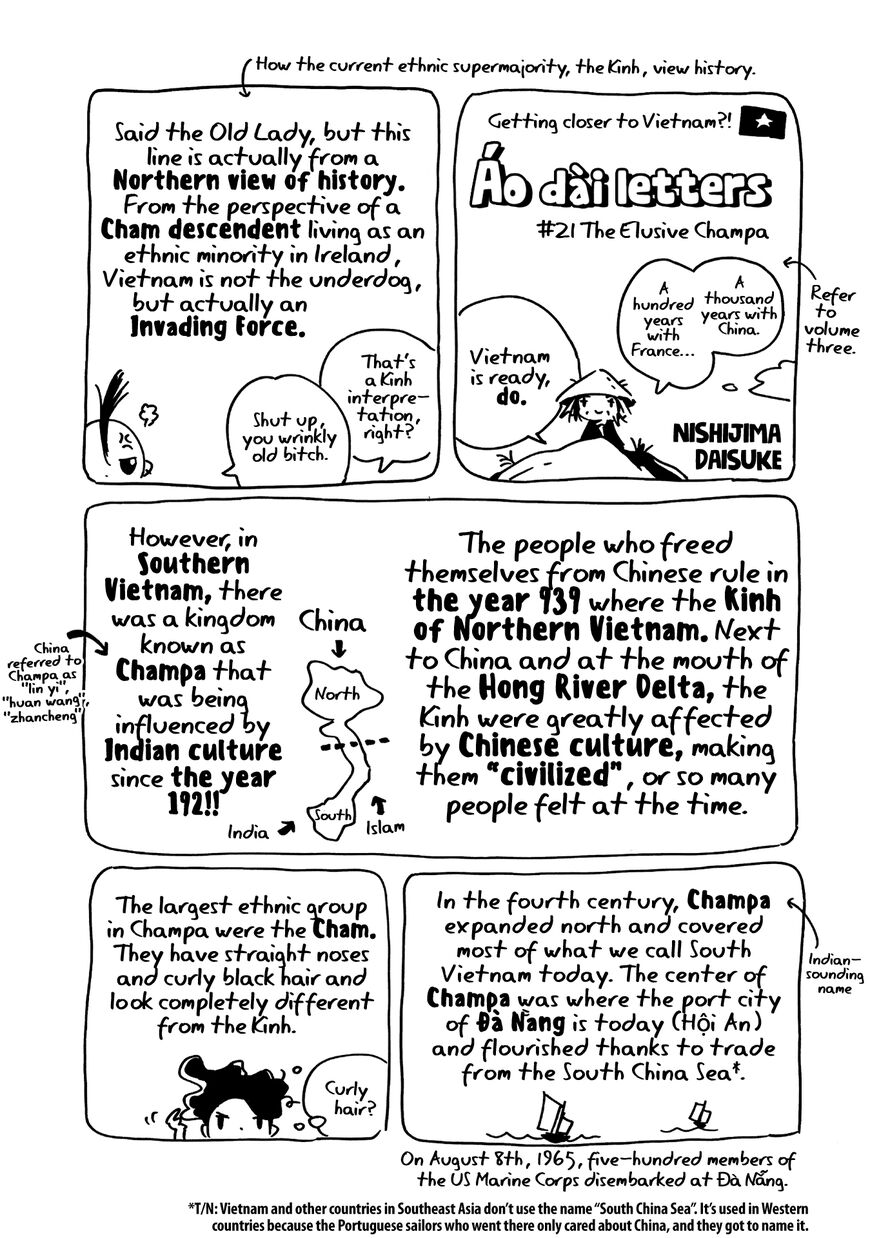 How the current ethnic supermajority, the Kinh, view history.
Getting closer to Vietnam?!
Áo dài letters
#21 The Elusive Champa
A
thousand
years with
China.
A
hundred
years
with
France...
Refer
to
volume
three.
Vietnam
is ready,
do.
NISHIJIMA
DAISUKE
Said the Old Lady, but this
line is actually from a
Northern view of history.
From the perspective of a
Cham descendent living as an
ethnic minority in Ireland,
Vietnam is not the underdog,
but actually an
Invading Force.
That's
a Kinh
interpre-
tation,
right?
Shut up,
you wrinkly
old bitch.
The people who freed
themselves from Chinese rule in
the year 939 where the Kinh
of Northern Vietnam. Next
to China and at the mouth of
the Hong River Delta, the
Kinh were greatly affected
by Chinese culture, making
them "civilized", or so many
people felt at the time.
China
North
South
India
Islam
However, in
Southern
Vietnam, there
was a kingdom
known as
Champa that
was being
influenced by
Indian culture
since the year
192!!
China
referred to
Champa as
"lin yi",
"huan wang",
"zhancheng"
In the fourth century, Champa
expanded north and covered
most of what we call South
Vietnam today. The center of
Champa was where the port city
of Đà Nẵng is today (Hội An)
and flourished thanks to trade
from the South China Sea*.
Indian-
sounding
name
The largest ethnic group
in Champa were the Cham.
They have straight noses
and curly black hair and
look completely different
from the Kinh.
Curly
hair?
On August 8th, 1965, five-hundred members of
the US Marine Corps disembarked at Đà Nẵng.
*T/N: Vietnam and other countries in Southeast Asia don't use the name "South China Sea". It's used in Western
countries because the Portuguese sailors who went there only cared about China, and they got to name it.